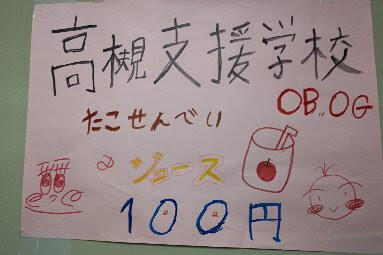 高槻支援学校
OB,OG
たこせんべい
ジュース
100円